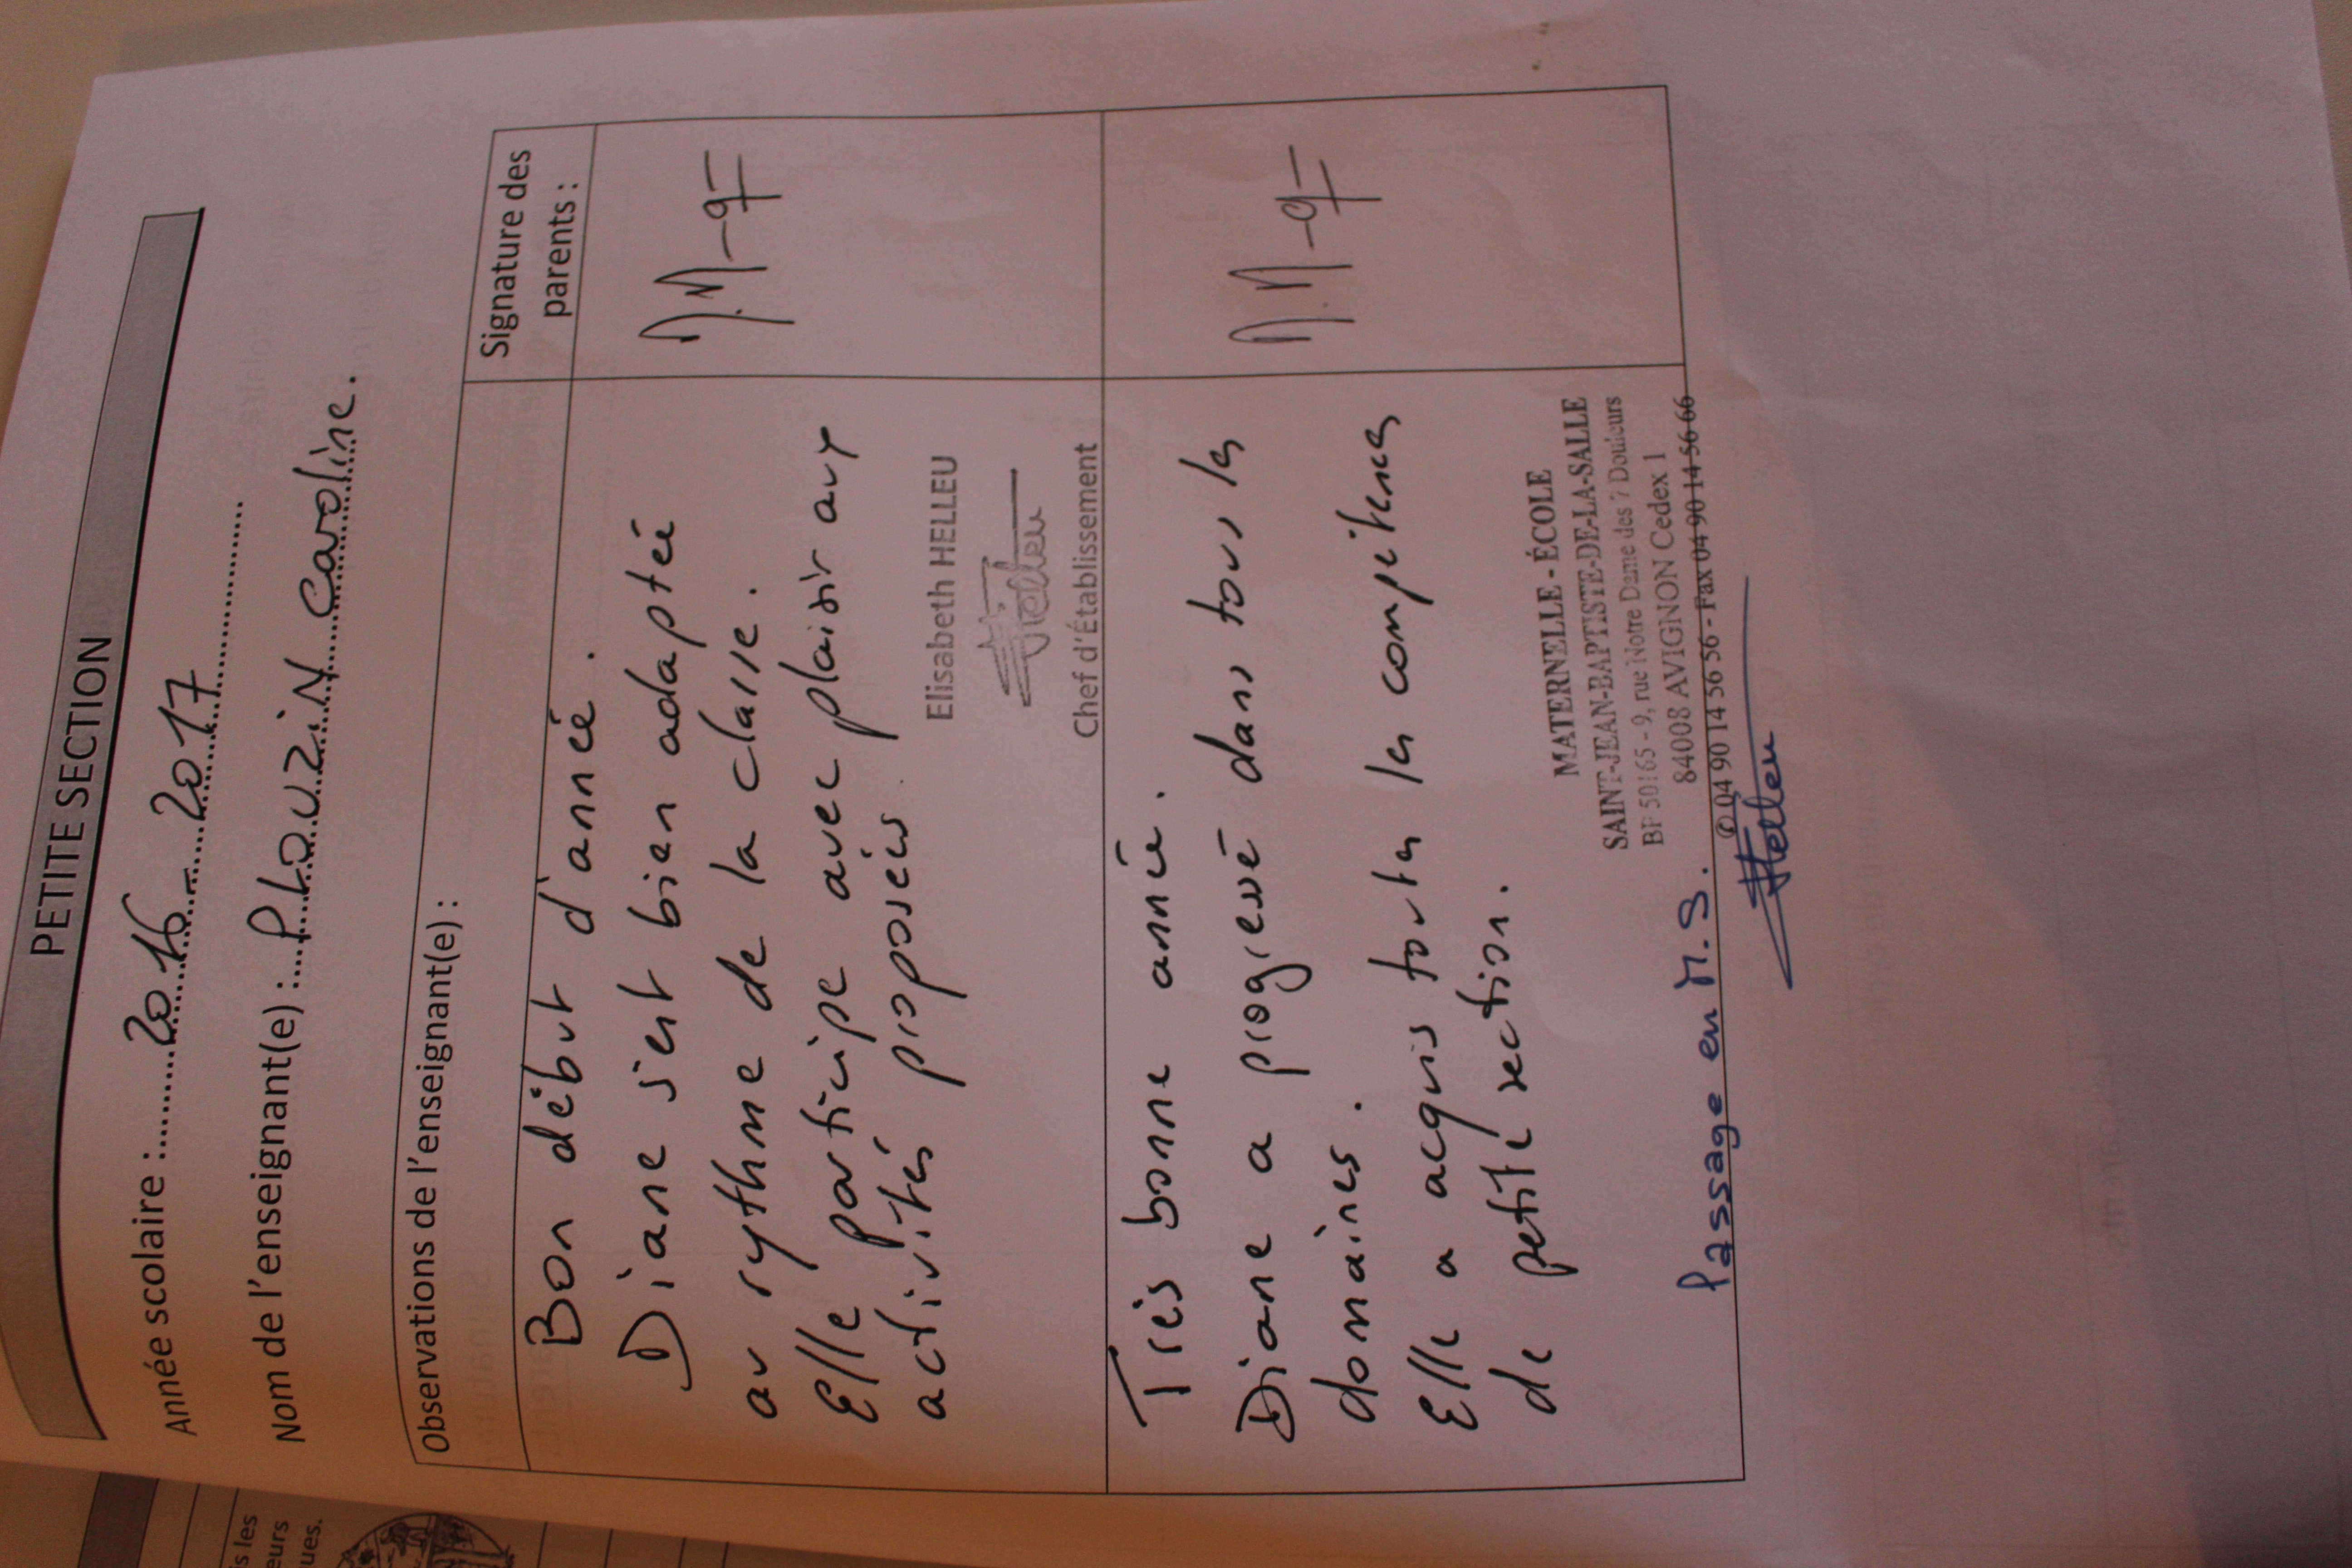 PETITE SECTION
Année scolaire : 2016 - 2017
Nom de l'enseignant(e) : PLAUZIN Caroline.
Observations de l'enseignant(e) :
Signature des
parents :
Bon début d'année.
Diane s'est bien adaptée
au rythme de la classe.
Elle participe avec plaisir aux
activités proposées.
Elisabeth HELLEU
Helleu
Chef d'Établissement
Très bonne année.
Diane a progressé dans tous les
domaines.
Elle a acquis toutes les compétences
de petite section.
MATERNELLE - ÉCOLE
SAINT-JEAN-BAPTISTE-DE-LA-SALLE
BP 50165 - 9, rue Notre Dame des 7 Douleurs
84008 AVIGNON Cedex 1
✆ 04 90 14 56 56 - Fax 04 90 14 56 66
Passage en M.S.
Helleu
is les
eurs
ues.